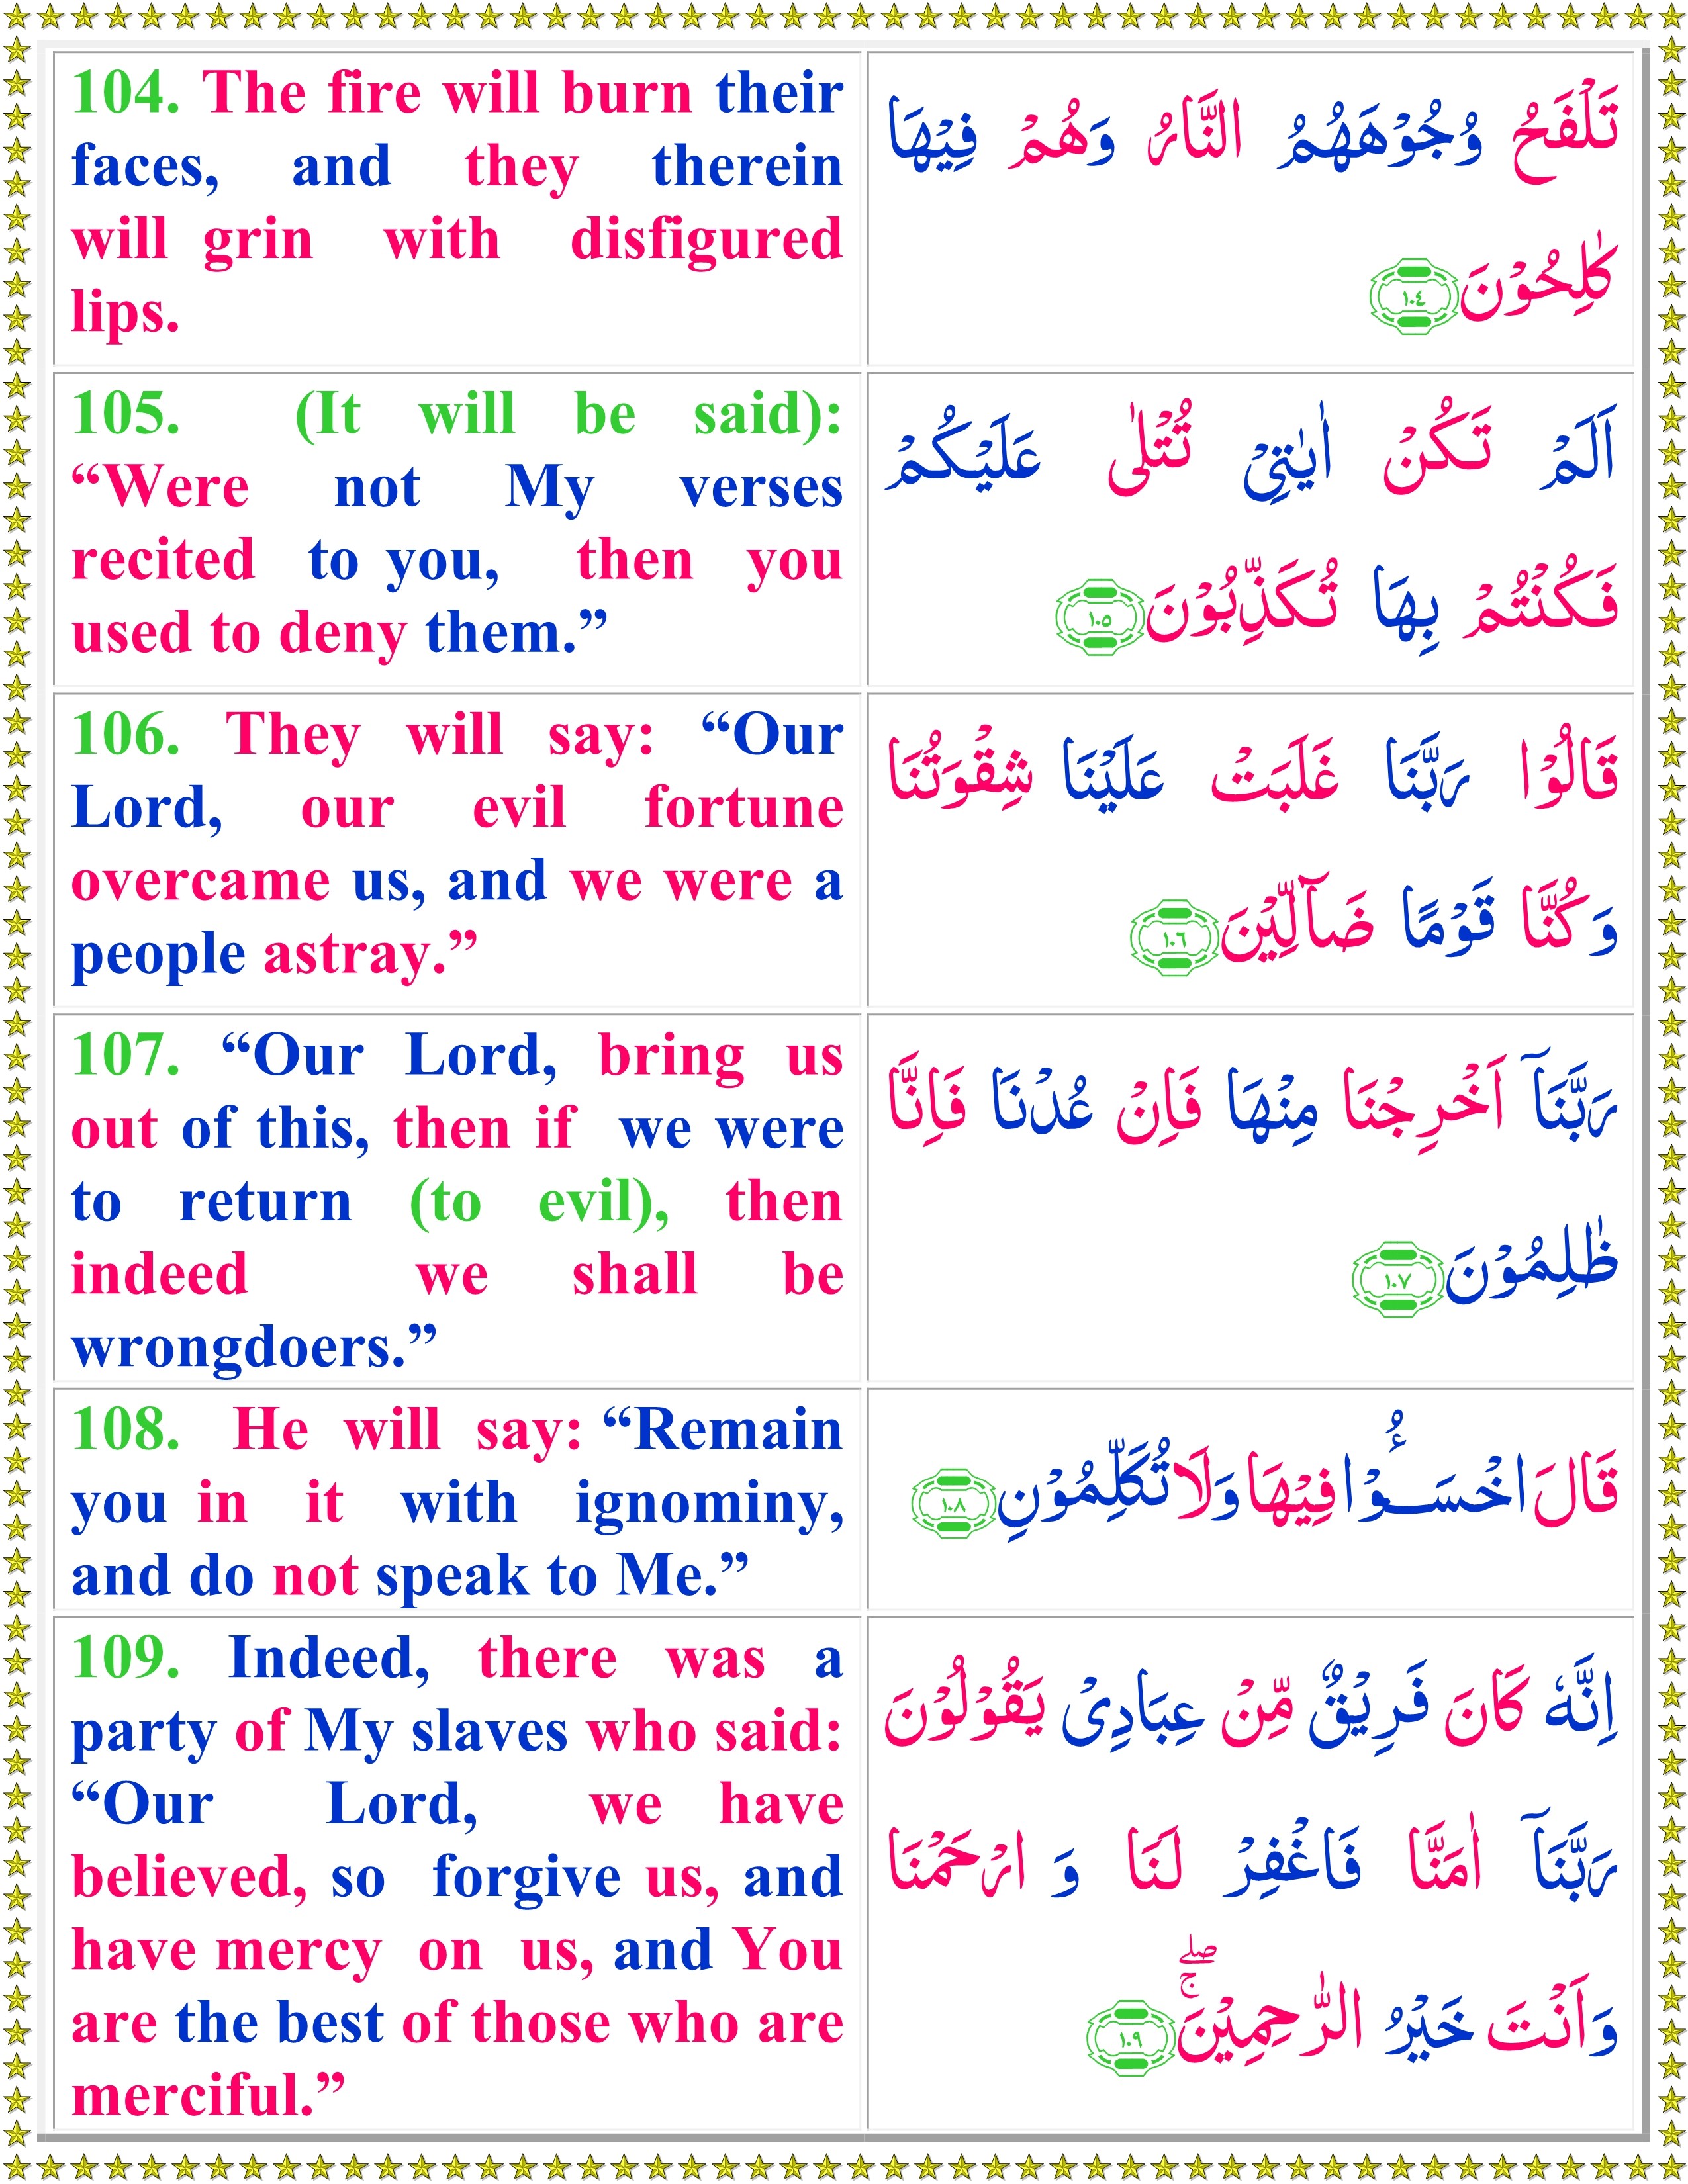 104. The fire will burn their
faces, and they therein
will grin with disfigured
lips.
تَلْفَحُ وُجُوْهَهُمُ النَّارُ وَهُمْ فِيْهَا
كٰلِحُوْنَ ١٠٤
105. (It will be said):
“Were not My verses
recited to you, then you
used to deny them.”
اَلَمْ تَكُنْ اٰيٰتِىْ تُتْلٰى عَلَيْكُمْ
فَكُنْتُمْ بِهَا تُكَذِّبُوْنَ ١٠٥
106. They will say: “Our
Lord, our evil fortune
overcame us, and we were a
people astray.”
قَالُوْا رَبَّنَا غَلَبَتْ عَلَيْنَا شِقْوَتُنَا
وَكُنَّا قَوْمًا ضَآلِّيْنَ ١٠٦
107. “Our Lord, bring us
out of this, then if we were
to return (to evil), then
indeed we shall be
wrongdoers.”
رَبَّنَآ اَخْرِجْنَا مِنْهَا فَاِنْ عُدْنَا فَاِنَّا
ظٰلِمُوْنَ ١٠٧
108. He will say: “Remain
you in it with ignominy,
and do not speak to Me.”
قَالَ اخْسَـُٔـوْا فِيْهَا وَلَا تُكَلِّمُوْنِ ١٠٨
109. Indeed, there was a
party of My slaves who said:
“Our Lord, we have
believed, so forgive us, and
have mercy on us, and You
are the best of those who are
merciful.”
اِنَّهٗ كَانَ فَرِيْقٌ مِّنْ عِبَادِىْ يَقُوْلُوْنَ
رَبَّنَآ اٰمَنَّا فَاغْفِرْ لَنَا وَ ارْحَمْنَا
وَاَنْتَ خَيْرُ الرّٰحِمِيْنَ ۚۖ ١٠٩